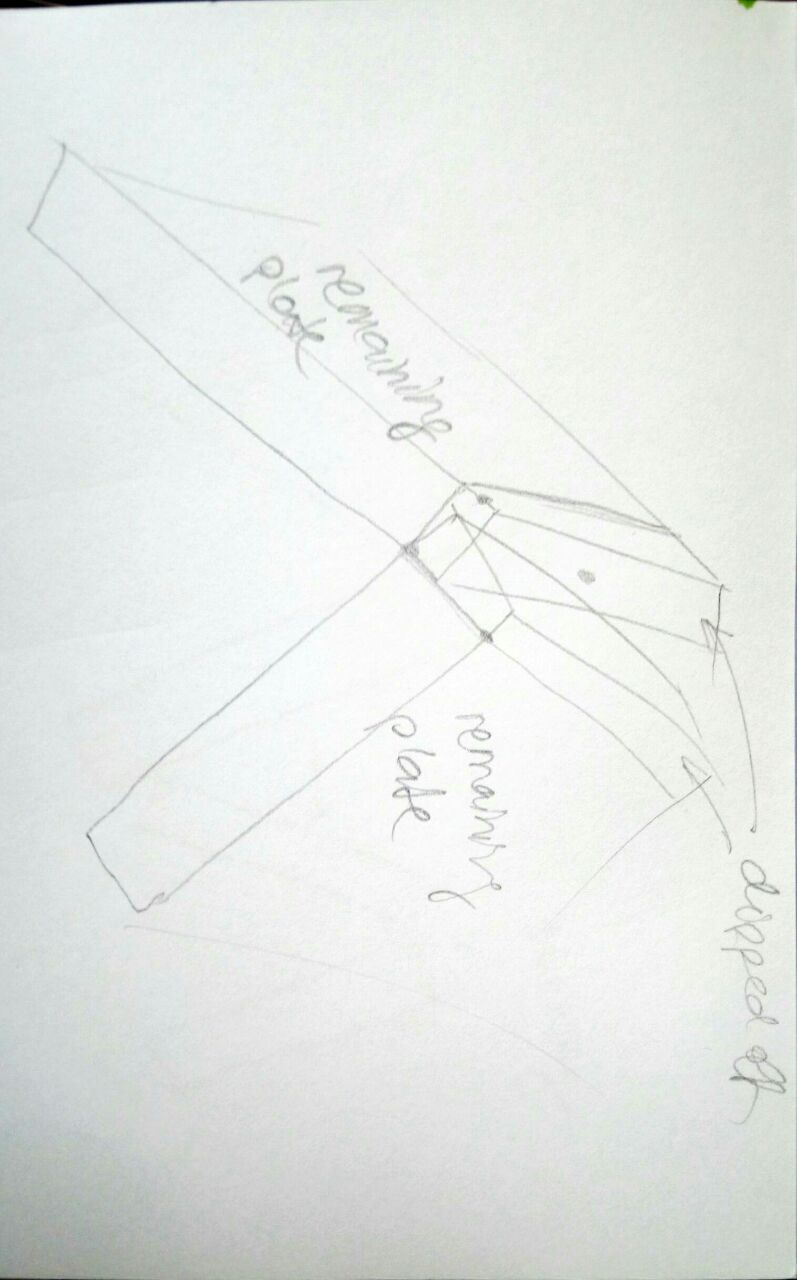 dipped off
remaining
plate
remaining
plate